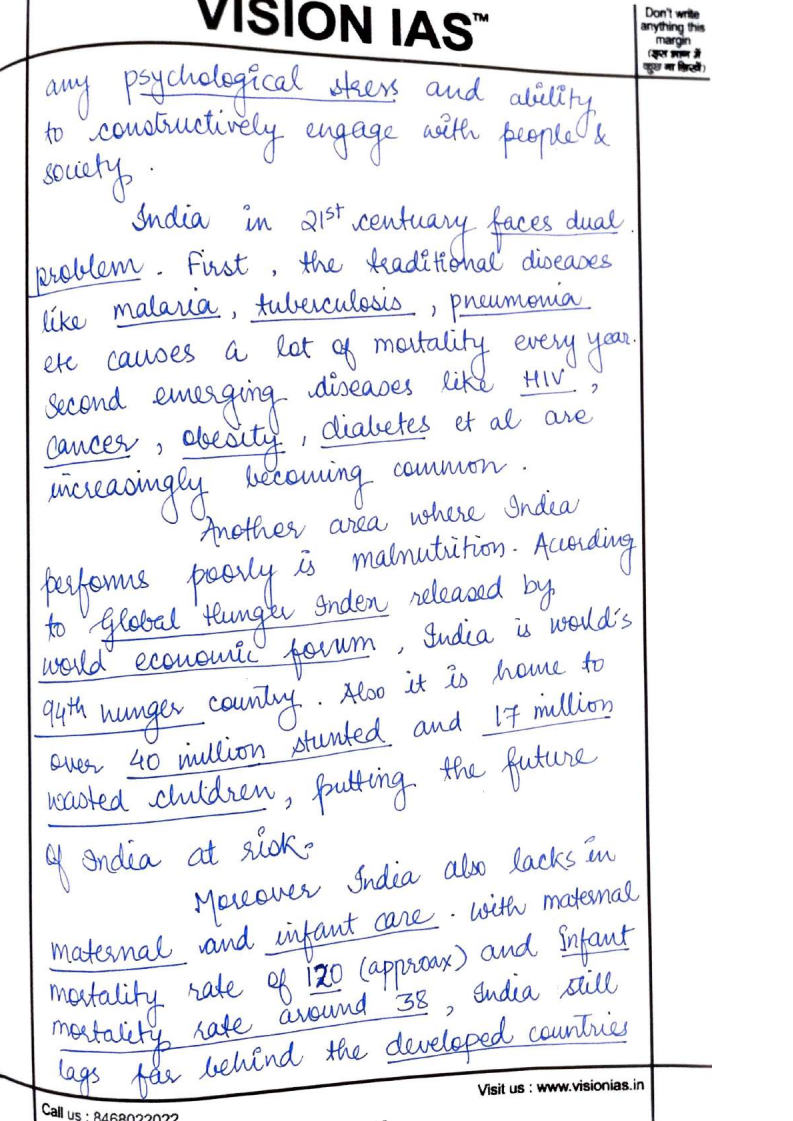 VISION IAS™
Don't write
anything this
margin
(इस भाग में
कुछ ना लिखें)
any psychological stress and ability
to constructively engage with people &
society.
India in 21st centuary faces dual
problem. First, the traditional diseases
like malaria, tuberculosis, pneumonia
etc causes a lot of mortality every year.
Second emerging diseases like HIV,
cancer, obesity, diabetes et al are
increasingly becoming common.
Another area where India
performs poorly is malnutrition. According
to Global Hunger Index released by
world economic forum, India is world's
94th hunger country. Also it is home to
over 40 million stunted and 17 million
wasted children, putting the future
of India at risk.
Moreover India also lacks in
maternal and infant care. with maternal
mortality rate of 120 (approax) and Infant
mortality rate around 38, India still
lags far behind the developed countries
Visit us : www.visionias.in
Call us : 8468022022